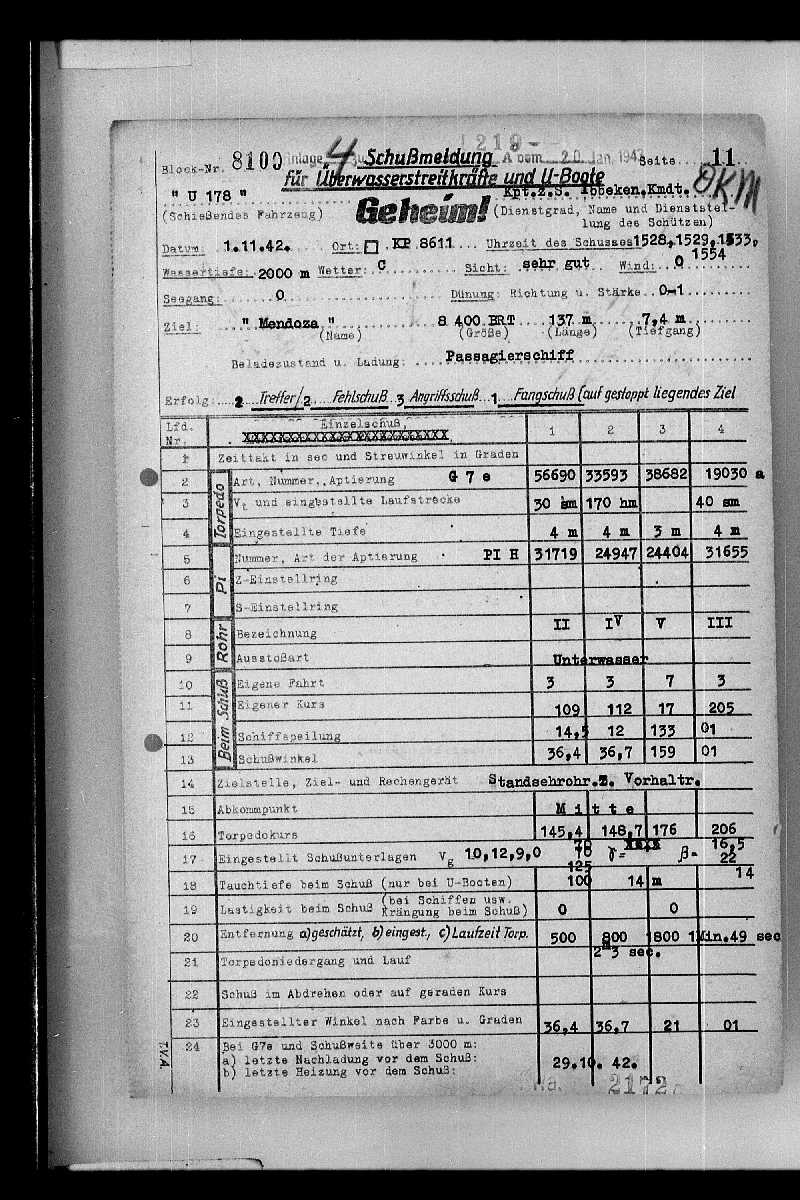 1219-
Block-Nr. 8100 inlage 4 zu Schußmeldung A vom 20 Jan. 1943 Seite..... 11..
für Überwasserstreitkräfte und U-Boote
OKM
" U 178 " Kpt.z.S. Ibbeken.Kmdt.
(Schießendes Fahrzeug) Geheim! (Dienstgrad, Name und Dienststel-
lung des Schützen)
Datum: 1.11.42. Ort: KP 8611 Uhrzeit des Schusses 1528, 1529, 1533,
1554
Wassertiefe: 2000 m Wetter: C Sicht: sehr gut Wind: 0
Seegang: 0 Dünung: Richtung u. Stärke 0-1
Ziel: " Mendoza " 8 400 BRT 137 m 7,4 m
(Name) (Größe) (Länge) (Tiefgang)
Beladezustand u. Ladung: Passagierschiff
Erfolg: 2 Treffer/2 Fehlschuß 3 Angriffsschuß 1 Fangschuß (auf gestoppt liegendes Ziel
Lfd. Nr. Einzelschuß, 1 2 3 4
1 Zeittakt in sec und Streuwinkel in Graden
Torpedo
2 Art, Nummer, Aptierung G 7 e 56690 33593 38682 19030 a
3 Vt und eingestellte Laufstrecke 30 sm 170 hm 40 sm
4 Eingestellte Tiefe 4 m 4 m 3 m 4 m
Pi
5 Nummer, Art der Aptierung PI H 31719 24947 24404 31655
6 Z-Einstellring
7 S-Einstellring
Rohr
8 Bezeichnung II IV V III
9 Ausstoßart Unterwasser
Beim Schuß
10 Eigene Fahrt 3 3 7 3
11 Eigener Kurs 109 112 17 205
12 Schiffspeilung 14,5 12 133 01
13 Schußwinkel 36,4 36,7 159 01
14 Zielstelle, Ziel- und Rechengerät Standsehrohr.Z. Vorhaltr.
15 Abkommpunkt M i t t e
16 Torpedokurs 145,4 148,7 176 206
17 Eingestellt Schußunterlagen Vg 10,12,9,0 78 γ= β= 16,5
22
125 14
18 Tauchtiefe beim Schuß (nur bei U-Booten) 100 14 m
19 Lastigkeit beim Schuß (bei Schiffen usw. Krängung beim Schuß) 0 0
20 Entfernung a) geschätzt, b) eingest., c) Laufzeit Torp. 500 800 1800 1Min.49 sec
2m 3 sec.
21 Torpedoniedergang und Lauf
22 Schuß im Abdrehen oder auf geraden Kurs
23 Eingestellter Winkel nach Farbe u. Graden 36,4 36,7 21 01
24 Bei G7e und Schußweite über 3000 m:
a) letzte Nachladung vor dem Schuß: 29.10. 42.
b) letzte Heizung vor dem Schuß:
T.V.A.
2172